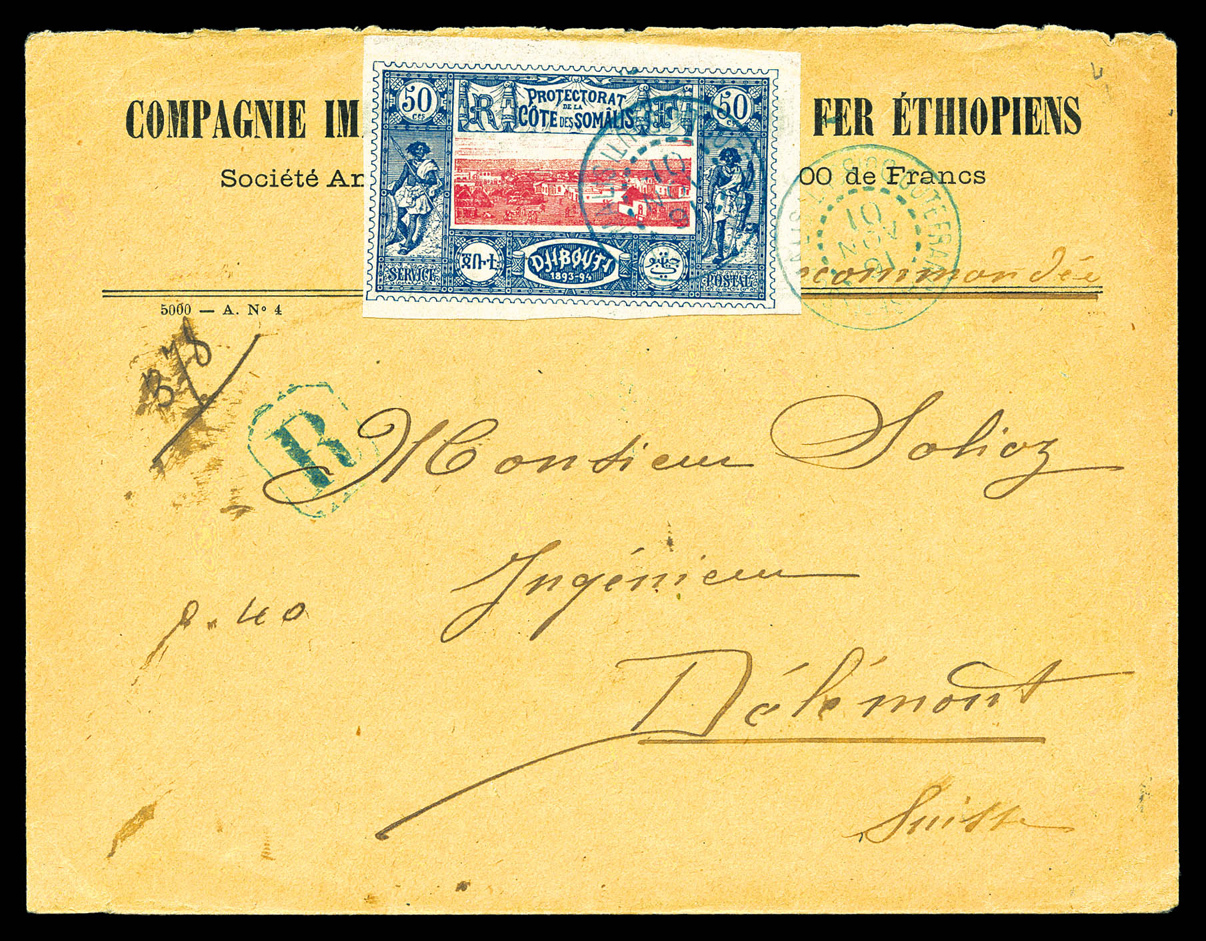 COMPAGNIE IM FER ÉTHIOPIENS
Société An 00 de Francs
50 PROTECTORAT 50
R DE LA F
CÔTE DES SOMALIS
SERVICE DJIBOUTI POSTAL
1893-94
Recommandée
5000 — A. N° 4
378
R
Monsieur Solioz
Ingénieur
p. 40
Délémont
Suisse